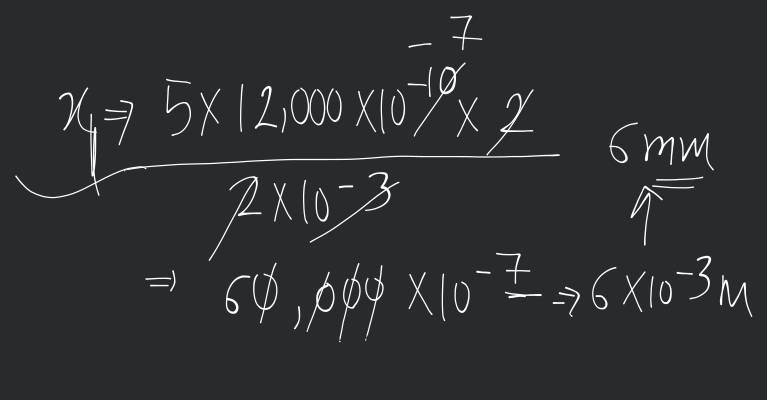 -7
x₁ ⇒ 5 × 12,000 × 10⁻¹⁰ × 2
2 × 10⁻³
6mm
⇒ 60,000 × 10⁻⁷ ⇒ 6 × 10⁻³ m